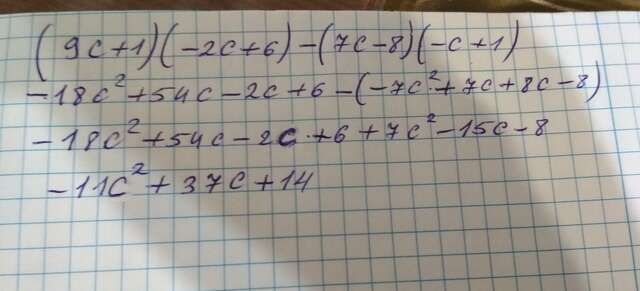 (9c+1)(-2c+6)-(7c-8)(-c+1)
-18c²+54c-2c+6-(-7c²+7c+8c-8)
-18c²+54c-2c+6+7c²-15c-8
-11c²+37c+14